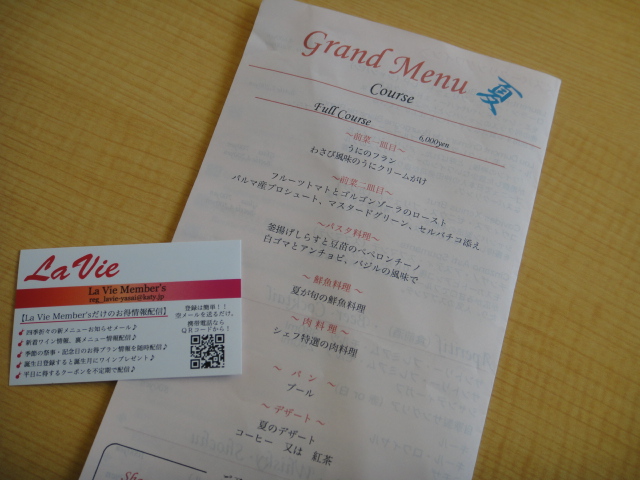 Grand Menu 夏
Course
Full Course 6,000yen
～前菜一皿目～
うにのフラン
わさび風味のうにクリームがけ
～前菜二皿目～
フルーツトマトとゴルゴンゾーラのロースト
パルマ産プロシュート、マスタードグリーン、セルバチコ添え
～パスタ料理～
釜揚げしらすと豆苗のペペロンチーノ
白ゴマとアンチョビ、バジルの風味で
～鮮魚料理～
夏が旬の鮮魚料理
～肉料理～
シェフ特選の肉料理
～パン～
ブール
～デザート～
夏のデザート
コーヒー 又は 紅茶
La Vie
La Vie Member's
reg_lavie-yasai@koty.jp
【La Vie Member'sだけのお得情報配信】
四季折々の新メニューお知らせメール♪
新着ワイン情報、裏メニュー情報配信♪
季節の祭事・記念日のお得プラン情報を随時配信♪
誕生日登録すると誕生月にワインプレゼント♪
平日に得するクーポンを不定期で配信♪
登録は簡単！！
空メールを送るだけ。
携帯電話なら
QRコードから！